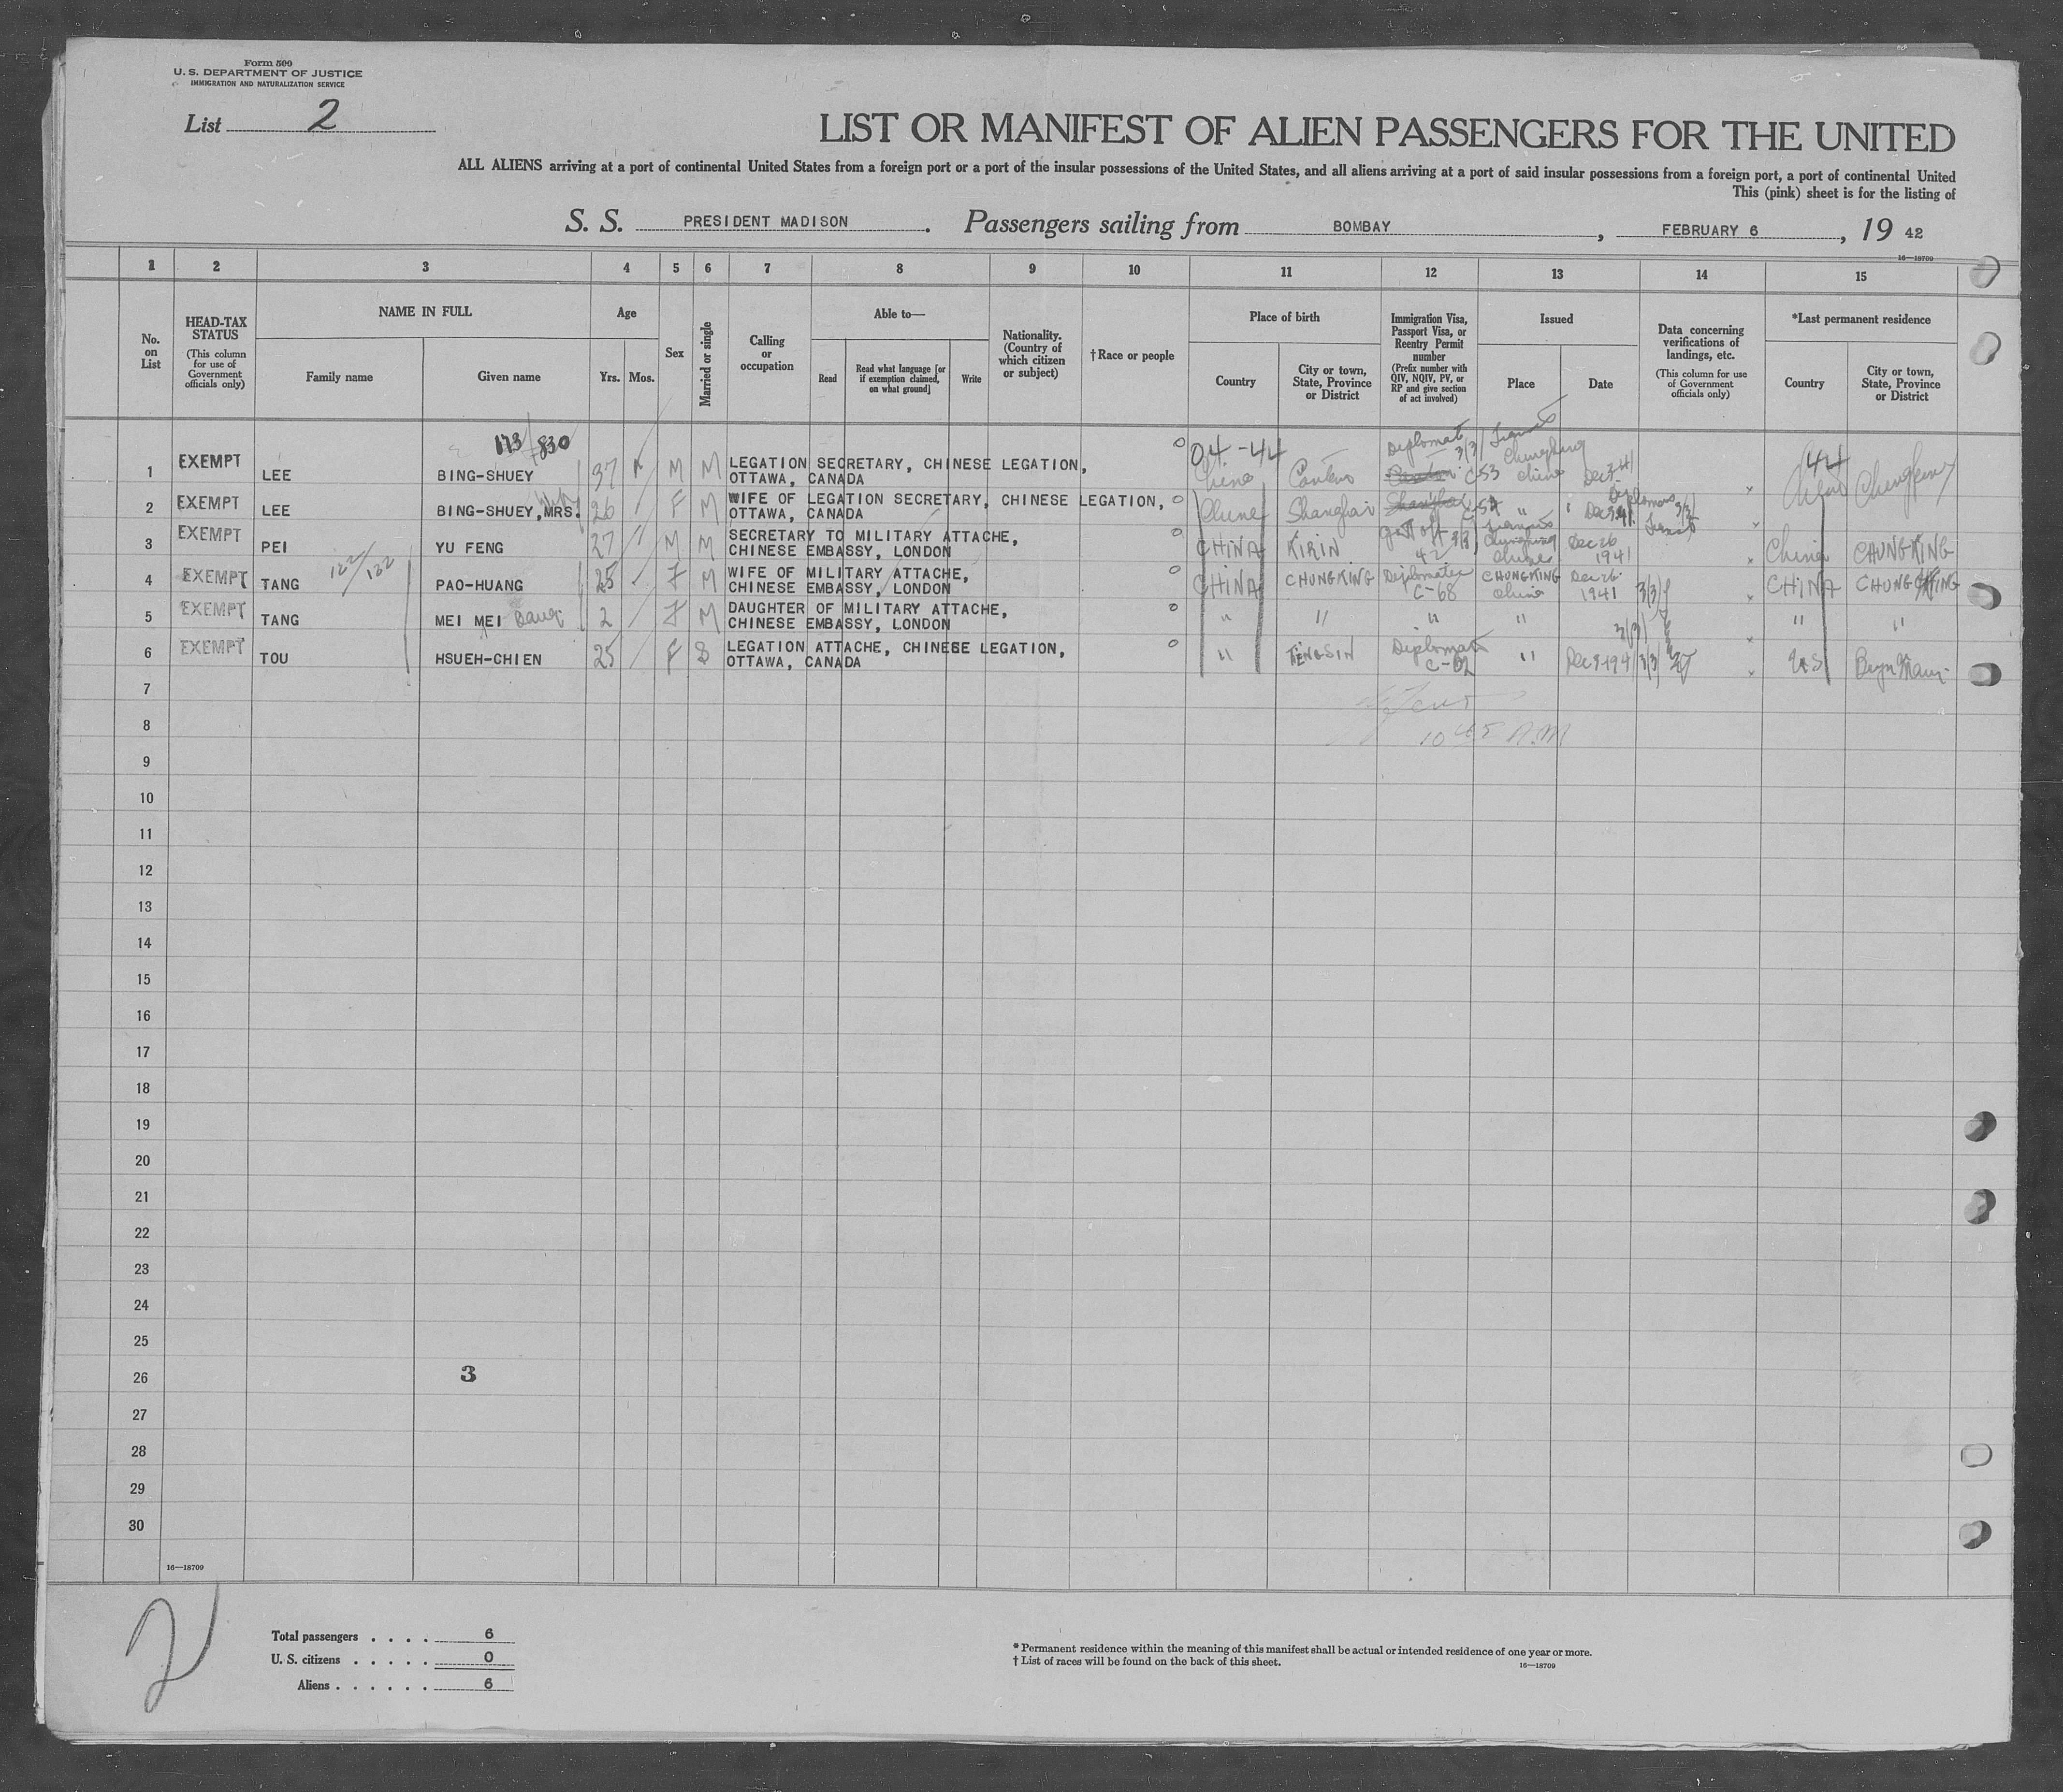 Form 500
U. S. DEPARTMENT OF JUSTICE
IMMIGRATION AND NATURALIZATION SERVICE
List 2
LIST OR MANIFEST OF ALIEN PASSENGERS FOR THE UNITED
ALL ALIENS arriving at a port of continental United States from a foreign port or a port of the insular possessions of the United States, and all aliens arriving at a port of said insular possessions from a foreign port, a port of continental United
This (pink) sheet is for the listing of
S. S. PRESIDENT MADISON. Passengers sailing from BOMBAY, FEBRUARY 6, 19 42
16—18709
1 2 3 4 5 6 7 8 9 10 11 12 13 14 15
No. on List
HEAD-TAX STATUS
(This column for use of Government officials only)
NAME IN FULL
Family name
Given name
Age
Yrs. Mos.
Sex
Married or single
Calling or occupation
Able to—
Read
Read what language [or if exemption claimed, on what ground]
Write
Nationality. (Country of which citizen or subject)
†Race or people
Place of birth
Country
City or town, State, Province or District
Immigration Visa, Passport Visa, or Reentry Permit number
(Prefix number with QIV, NQIV, PV, or RP and give section of act involved)
Issued
Place
Date
Data concerning verifications of landings, etc.
(This column for use of Government officials only)
*Last permanent residence
Country
City or town, State, Province or District
173/830
04-44 Diplomat 3/3 44
1 EXEMPT LEE BING-SHUEY 37 M M LEGATION SECRETARY, CHINESE LEGATION, China Canton C-53 Chungking China
OTTAWA, CANADA
2 EXEMPT LEE BING-SHUEY, MRS. 26 F M WIFE OF LEGATION SECRETARY, CHINESE LEGATION, China Shanghai C-54 "
OTTAWA, CANADA
3 EXEMPT PEI YU FENG 27 M M SECRETARY TO MILITARY ATTACHE, CHINA KIRIN 42 Chungking China Dec 26 1941 China CHUNGKING
CHINESE EMBASSY, LONDON
122/132
4 EXEMPT TANG PAO-HUANG 25 F M WIFE OF MILITARY ATTACHE, CHINA CHUNGKING Diplomatic C-68 CHUNGKING China Dec 26 1941 3/3 CHINA CHUNGKING
CHINESE EMBASSY, LONDON
5 EXEMPT TANG MEI MEI 2 F M DAUGHTER OF MILITARY ATTACHE, " " " " 3/3 " "
CHINESE EMBASSY, LONDON
6 EXEMPT TOU HSUEH-CHIEN 25 F S LEGATION ATTACHE, CHINESE LEGATION, " TENGSIN Diplomat " 3/3
OTTAWA, CANADA
7
8 10 45 A.M
9
10
11
12
13
14
15
16
17
18
19
20
21
22
23
24
25
26 3
27
28
29
30
16—18709
2
Total passengers . . . . 6
U. S. citizens . . . . . 0
Aliens . . . . . . 6
* Permanent residence within the meaning of this manifest shall be actual or intended residence of one year or more.
† List of races will be found on the back of this sheet.
16—18709